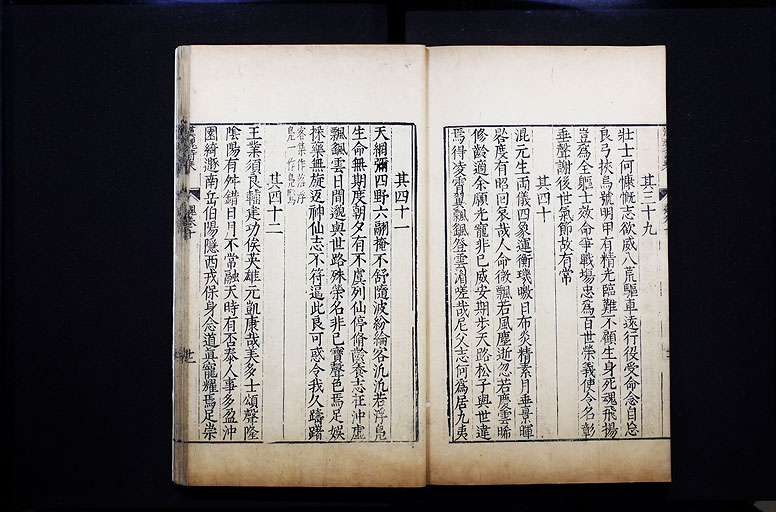 其三十九
壯士何慷慨志欲威八荒驅車遠行役受命念自忘
良弓挾烏號明甲有精光臨難不顧生身死魂飛揚
豈為全軀士效命爭戰場忠為百世榮義使令名彰
垂聲謝後世氣節故有常
其四十
混元生兩儀四象運衡璣曒日布炎精素月垂景暉
晷度有昭回哀哉人命微飄若風塵逝忽若慶雲晞
修齡適余願光寵非己威安期步天路松子與世違
焉得凌霄翼飄颻登雲湄嗟哉尼父志何為居九夷
其四十一
天網彌四野六翮掩不舒隨波紛綸客汎汎若浮鳧
生命無期度朝夕有不虞列仙停脩齡養志在沖虛
飄颻雲日間邈與世路殊榮名非己寶聲色焉足娛
採藥無旋返神仙志不符逼此良可惑令我久躊躇
其四十二
王業須良輔建功俟英雄元凱康哉美多士頌聲隆
陰陽有舛錯日月不常融天時有否泰人事多盈沖
園綺遯南岳伯陽隱西戎保身念道真寵耀焉足崇